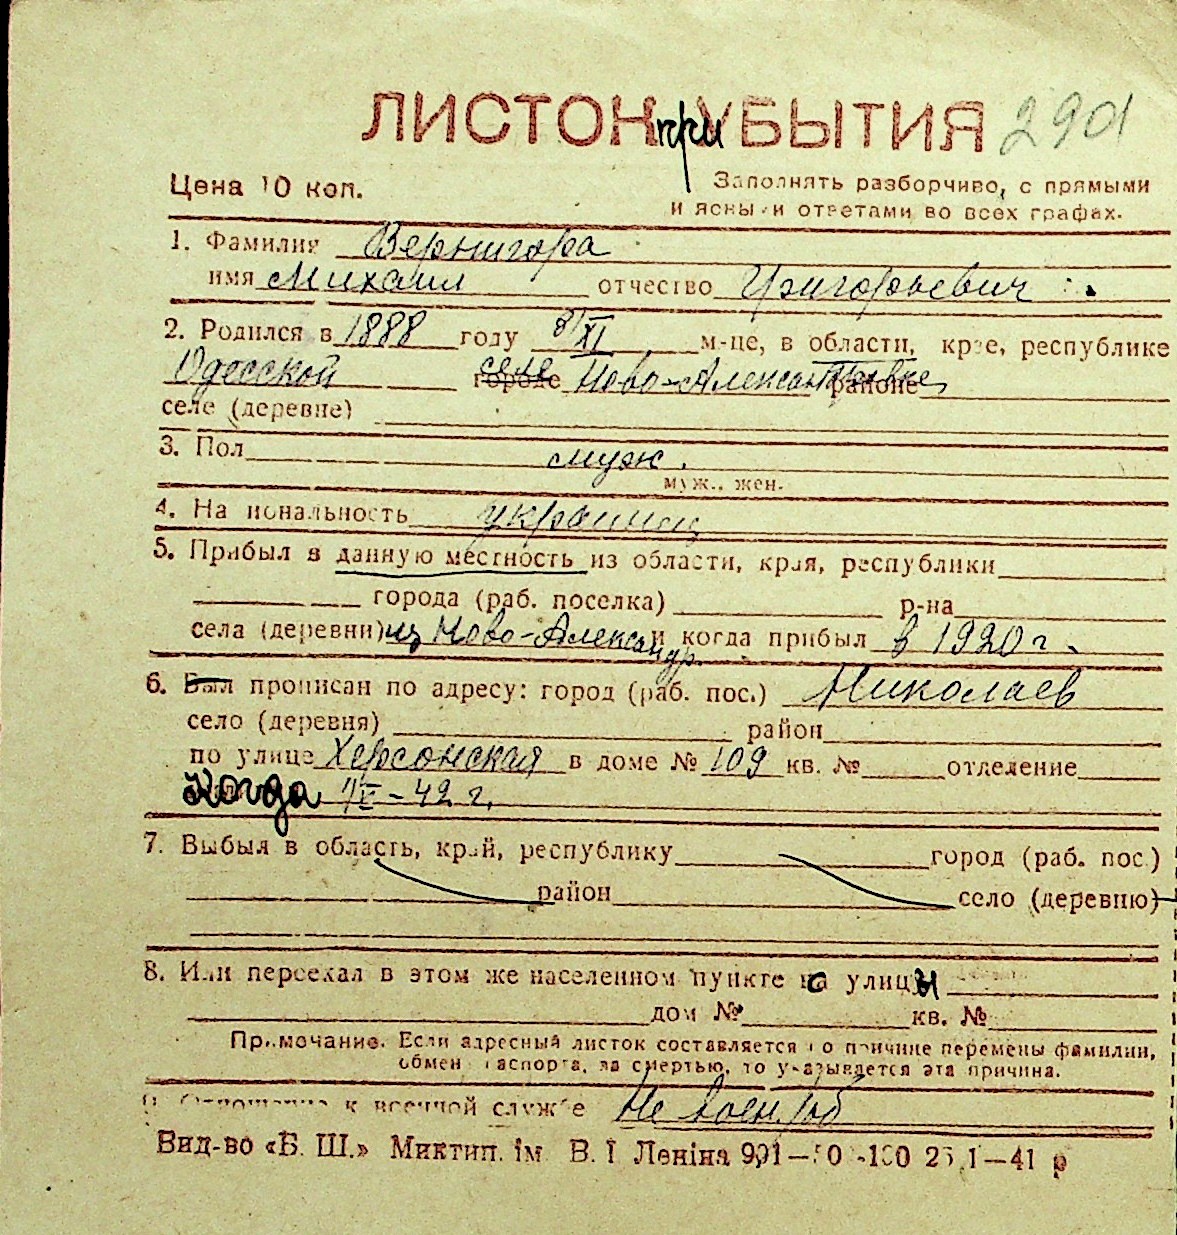 ЛИСТОК при УБЫТИЯ 2901
Цена 10 коп.
Заполнять разборчиво, с прямыми
и ясными ответами во всех графах.
1. Фамилия Вернигора
имя Михаил отчество Григорьевич
2. Родился в 1888 году 8/XI м-це, в области, крае, республике
Одесской городе селе Ново-Александровке районе
селе (деревне)
3. Пол муж.
муж., жен.
4. Национальность украинец
5. Прибыл в данную местность из области, края, республики
города (раб. поселка) р-на
села (деревни) из Ново-Александр. и когда прибыл в 1920 г.
6. Был прописан по адресу: город (раб. пос.) Николаев
село (деревня) район
по улице Херсонская в доме № 109 кв. № отделение
Когда -42 г.
7. Выбыл в область, край, республику город (раб. пос.)
район село (деревню)
8. Или переехал в этом же населенном пункте с улицы
дом № кв. №
Примечание. Если адресный листок составляется по причине перемены фамилии,
обмен паспорта, за смертью, то указывается эта причина.
9. Отношение к военной службе Не воен/об
Вид-во «Б. Ш.» Миктип. ім В. І Леніна 991—50 -100 1—41 р